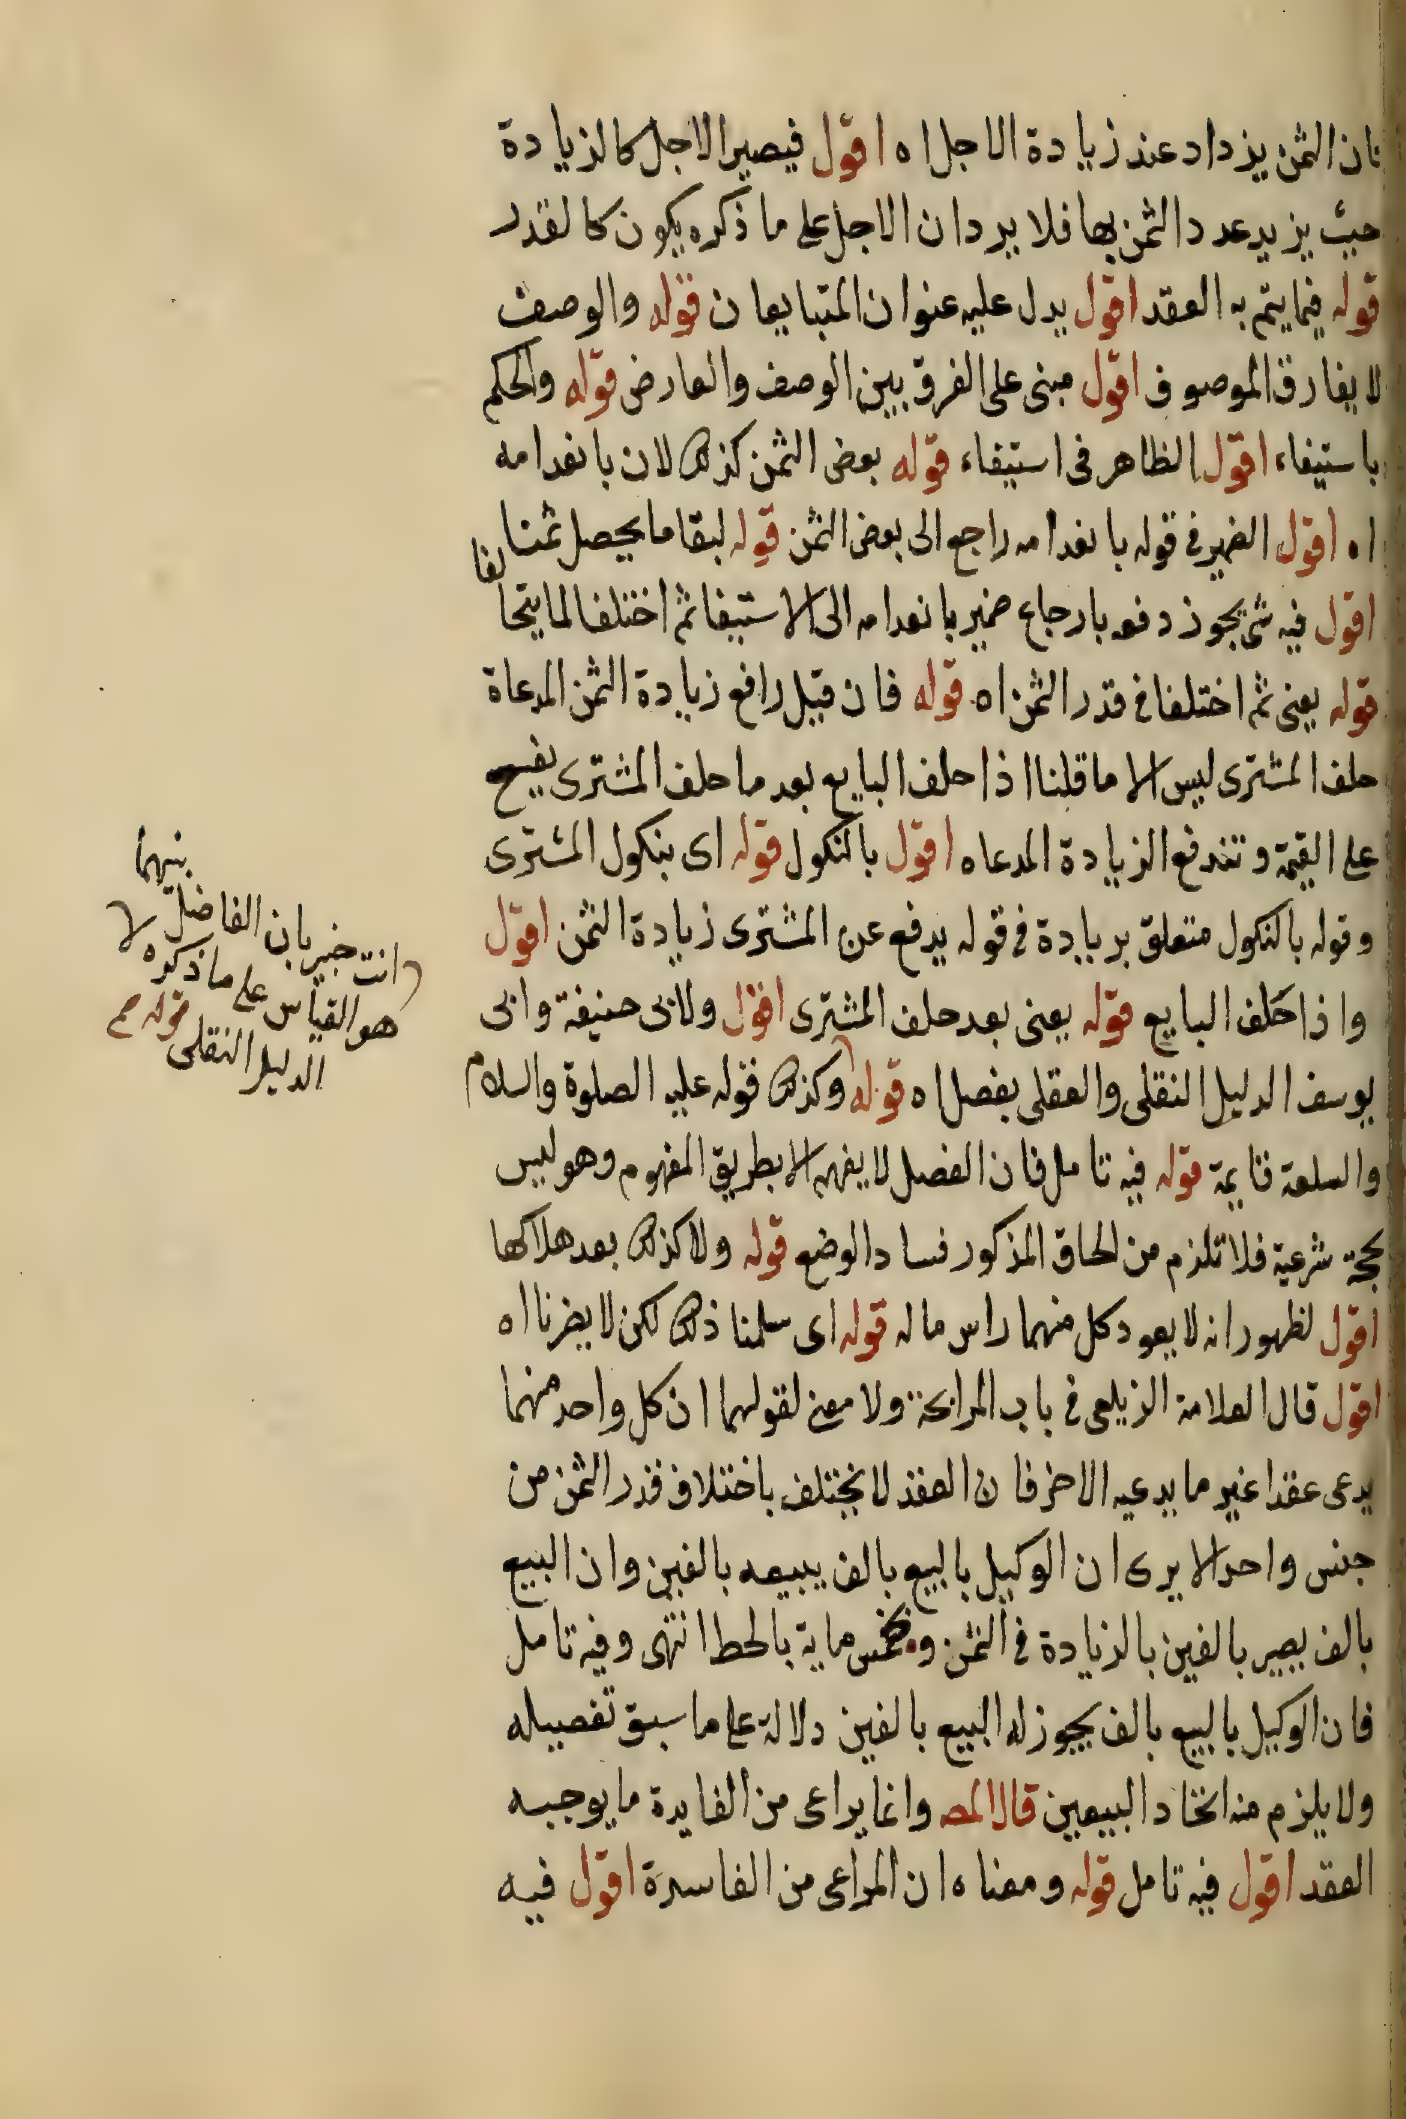 فان الثمن يزداد عند زيادة الاجل اه اقول فيصير الاجل كالزيادة
حيث يزيد عدد الثمن بها فلا يرد ان الاجل على ما ذكره يكون كالقدر
قوله فيما يتم به العقد اقول يدل عليه عنوان المتبايعان قوله والوصف
لا يفارق الموصوف اقول مبنى على الفرق بين الوصف والعارض قوله والحكم
باستيفاء اقول الظاهر فى استيفاء قوله بعض الثمن كذلك لان بانعدامه
اه اقول الضمير فى قوله بانعدامه راجع الى بعض الثمن قوله لبقا ما يحصل ثمنا
اقول فيه شئ يجوز دفعه بارجاع ضمير بانعدامه الى الاستيفا ثم اختلفا لما يتحالفا
قوله يعنى ثم اختلفا فى قدر الثمن اه قوله فان قيل رافع زيادة الثمن المدعاة
حلف المشترى ليس الا ما قلنا اذا حلف البايع بعد ما حلف المشترى يفسخ
على القيمة وتندفع الزيادة المدعاه اقول بالنكول قوله اى بنكول المشترى
وقوله بالنكول متعلق بزيادة فى قوله يدفع عن المشترى زيادة الثمن اقول
واذا حلف البايع قوله يعنى بعد حلف المشترى اقول ولابى حنيفة وابى
يوسف الدليل النقلى والعقلى بفصل اه قوله وكذلك قوله عليه الصلوة والسلام
والسلعة قايمة قوله فيه تامل فان الفصل لا يفهم الا بطريق المفهوم وهو ليس
بحجة شرعية فلا تلزم من الحاق المذكور فساد الوضع قوله ولا كذلك بعد هلاكها
اقول لظهور انه لا يعود كل منهما راس ماله قوله اى سلمنا ذلك لكن لا يضرنا اه
اقول قال العلامة الزيلعى فى باب المرابحة ولا معنى لقولهما ان كل واحد منهما
يدعى عقدا غير ما يدعيه الاخر فان العقد لا يختلف باختلاف قدر الثمن من
جنس واحد الا يرى ان الوكيل بالبيع بالف يبيعه بالفين وان البيع
بالف يصير بالفين بالزيادة فى الثمن وبخمس ماية بالحط انتهى وفيه تامل
فان الوكيل بالبيع بالف يجوز له البيع بالفين دلالة على ما سبق تفصيله
ولا يلزم منه اتحاد البيعين قال المص وانما يراعى من الفايدة ما يوجبه
العقد اقول فيه تامل قوله ومعناه ان المراعى من الفاسدة اقول فيه
بينهما
انت خبير بان الفاضل
هو القياس على ما ذكره لا
الدليل النقلى قوله صح